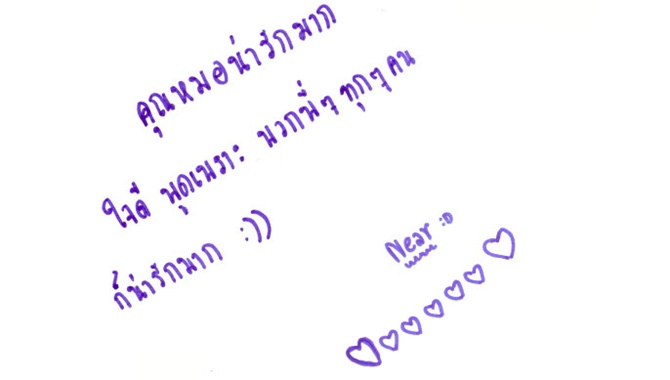 คุณหมอน่ารักมาก
ใจดี พูดเพราะ พวกพี่ๆ ทุกๆ คน
ก็น่ารักมาก :))
Near :D